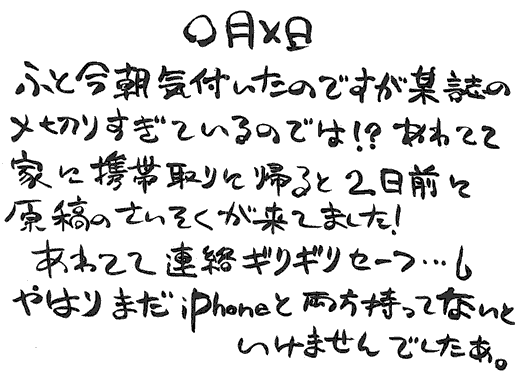 〇月×日
ふと今朝気付いたのですが某誌の
〆切りすぎているのでは!? あわてて
家に携帯取りに帰ると2日前に
原稿のさいそくが来てました!
あわてて連絡ギリギリセーフ…し
やはりまだiPhoneと両方持ってないと
いけませんでしたあ。